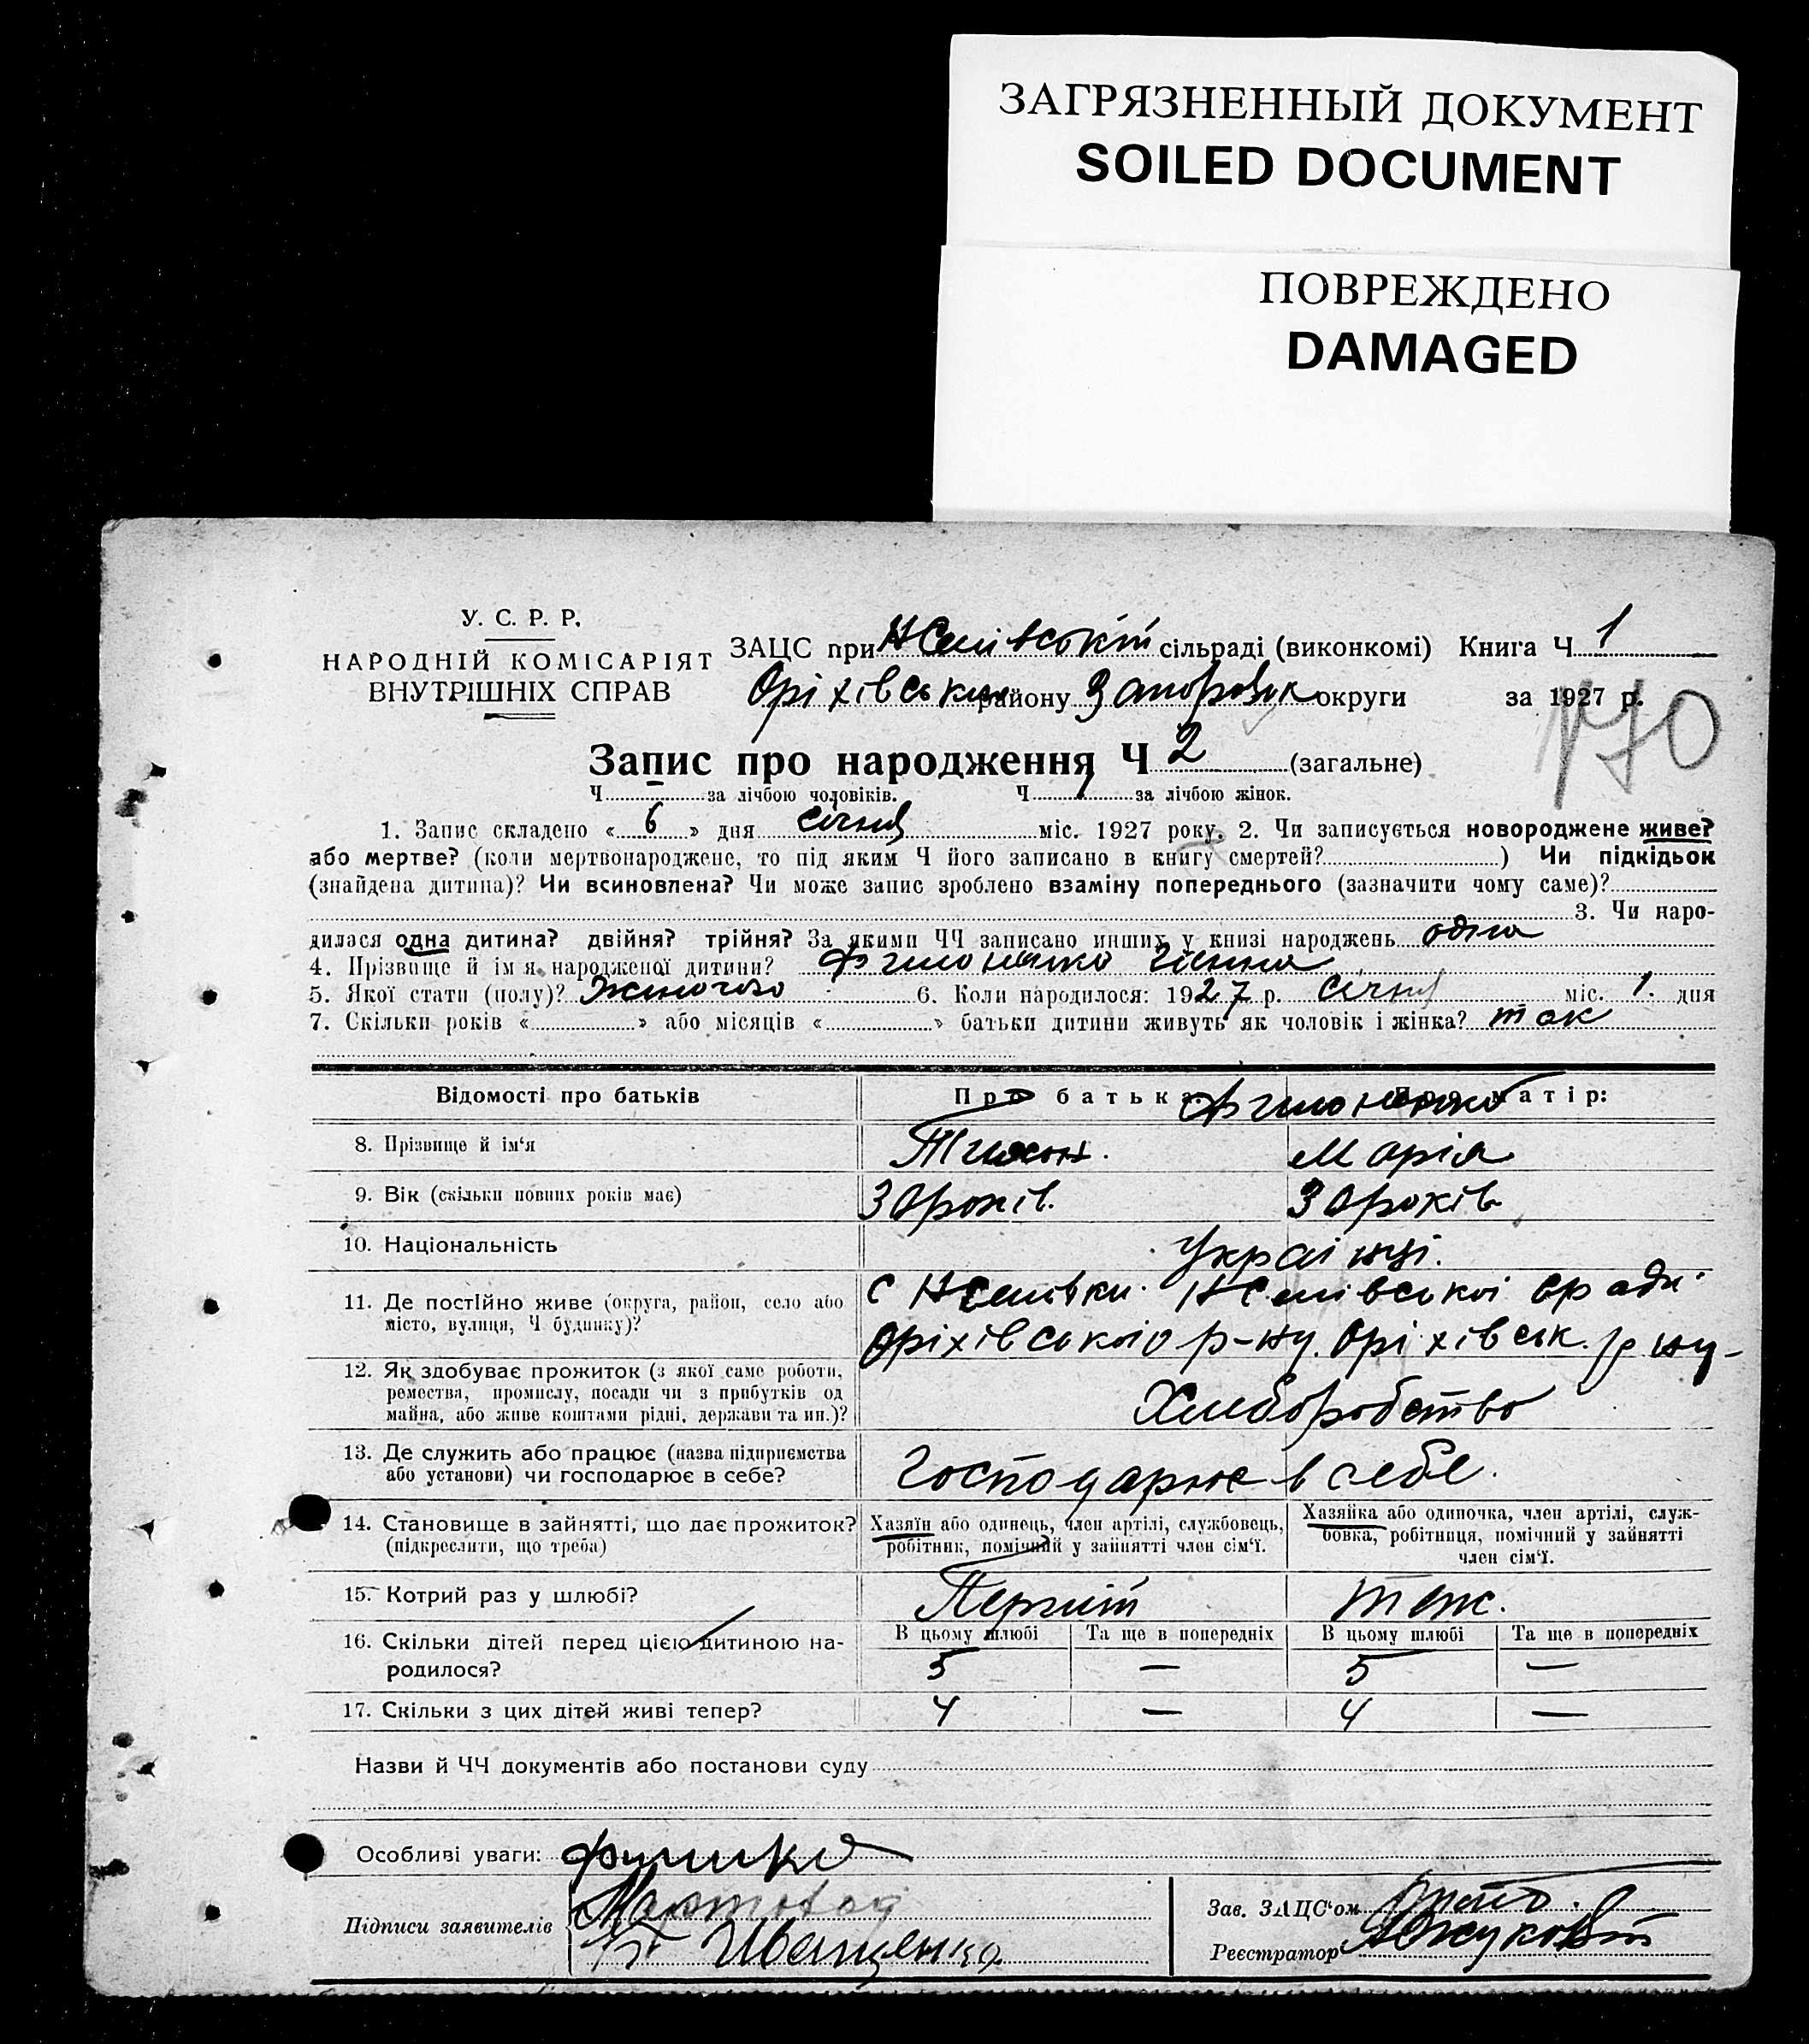 ЗАГРЯЗНЕННЫЙ ДОКУМЕНТ
SOILED DOCUMENT
ПОВРЕЖДЕНО
DAMAGED
У. С. Р. Р.
НАРОДНІЙ КОМІСАРІЯТ
ВНУТРІШНІХ СПРАВ
ЗАЦС при сільраді (виконкомі) Книга Ч 1
Оріхівськ району Запорізьк округи за 1927 р.
170
Запис про народження Ч 2 (загальне)
Ч — за лічбою чоловіків. Ч 1 за лічбою жінок.
1. Запис складено « 6 » дня січня міс. 1927 року. 2. Чи записується новороджене живе?
або мертве? (коли мертвонароджене, то під яким Ч його записано в книгу смертей? ) Чи підкідьок
(знайдена дитина)? Чи всиновлена? Чи може запис зроблено взаміну попереднього (зазначити чому саме)?
3. Чи наро-
дилася одна дитина? двійня? трійня? За якими ЧЧ записано инших у книзі народжень одна
4. Прізвище й ім'я народженої дитини? Филоненко Ганна
5. Якої стати (полу)? Жиночого 6. Коли народилося: 1927 р. Січня міс. 1. дня
7. Скільки років « » або місяців « » батьки дитини живуть як чоловік і жінка? так
Відомості про батьків Про батька: Про матір:
Филоненко
8. Прізвище й ім'я Тихон. Марія
9. Вік (скільки повних років має) 30 років. 30 років
10. Національність Українці.
11. Де постійно живе (округа, район, село або
місто, вулиця, Ч будинку)?
Оріхівського р-ну. Оріхівськ. р ну-
12. Як здобуває прожиток (з якої саме роботи,
ремества, промислу, посади чи з прибутків од
майна, або живе коштами рідні, держави та ин.)?
Хлиборобство
13. Де служить або працює (назва підприємства
або установи) чи господарює в себе?
Господарює в себе.
14. Становище в зайнятті, що дає прожиток?
(підкреслити, що треба)
Хазяїн або одинець, член артілі, службовець,
робітник, помічний у зайнятті член сім'ї.
Хазяйка або одиночка, член артілі, служ-
бовка, робітниця, помічний у зайнятті
член сім'ї.
15. Котрий раз у шлюбі? Перший теж.
16. Скільки дітей перед цією дитиною на-
родилося?
В цьому шлюбі Та ще в попередніх В цьому шлюбі Та ще в попередніх
5 — 5 —
17. Скільки з цих дітей живі тепер? 4 — 4 —
Назви й ЧЧ документів або постанови суду
Особливі уваги:
Підписи заявителів
Іващенко
Зав. ЗАЦС'ом
Реєстратор